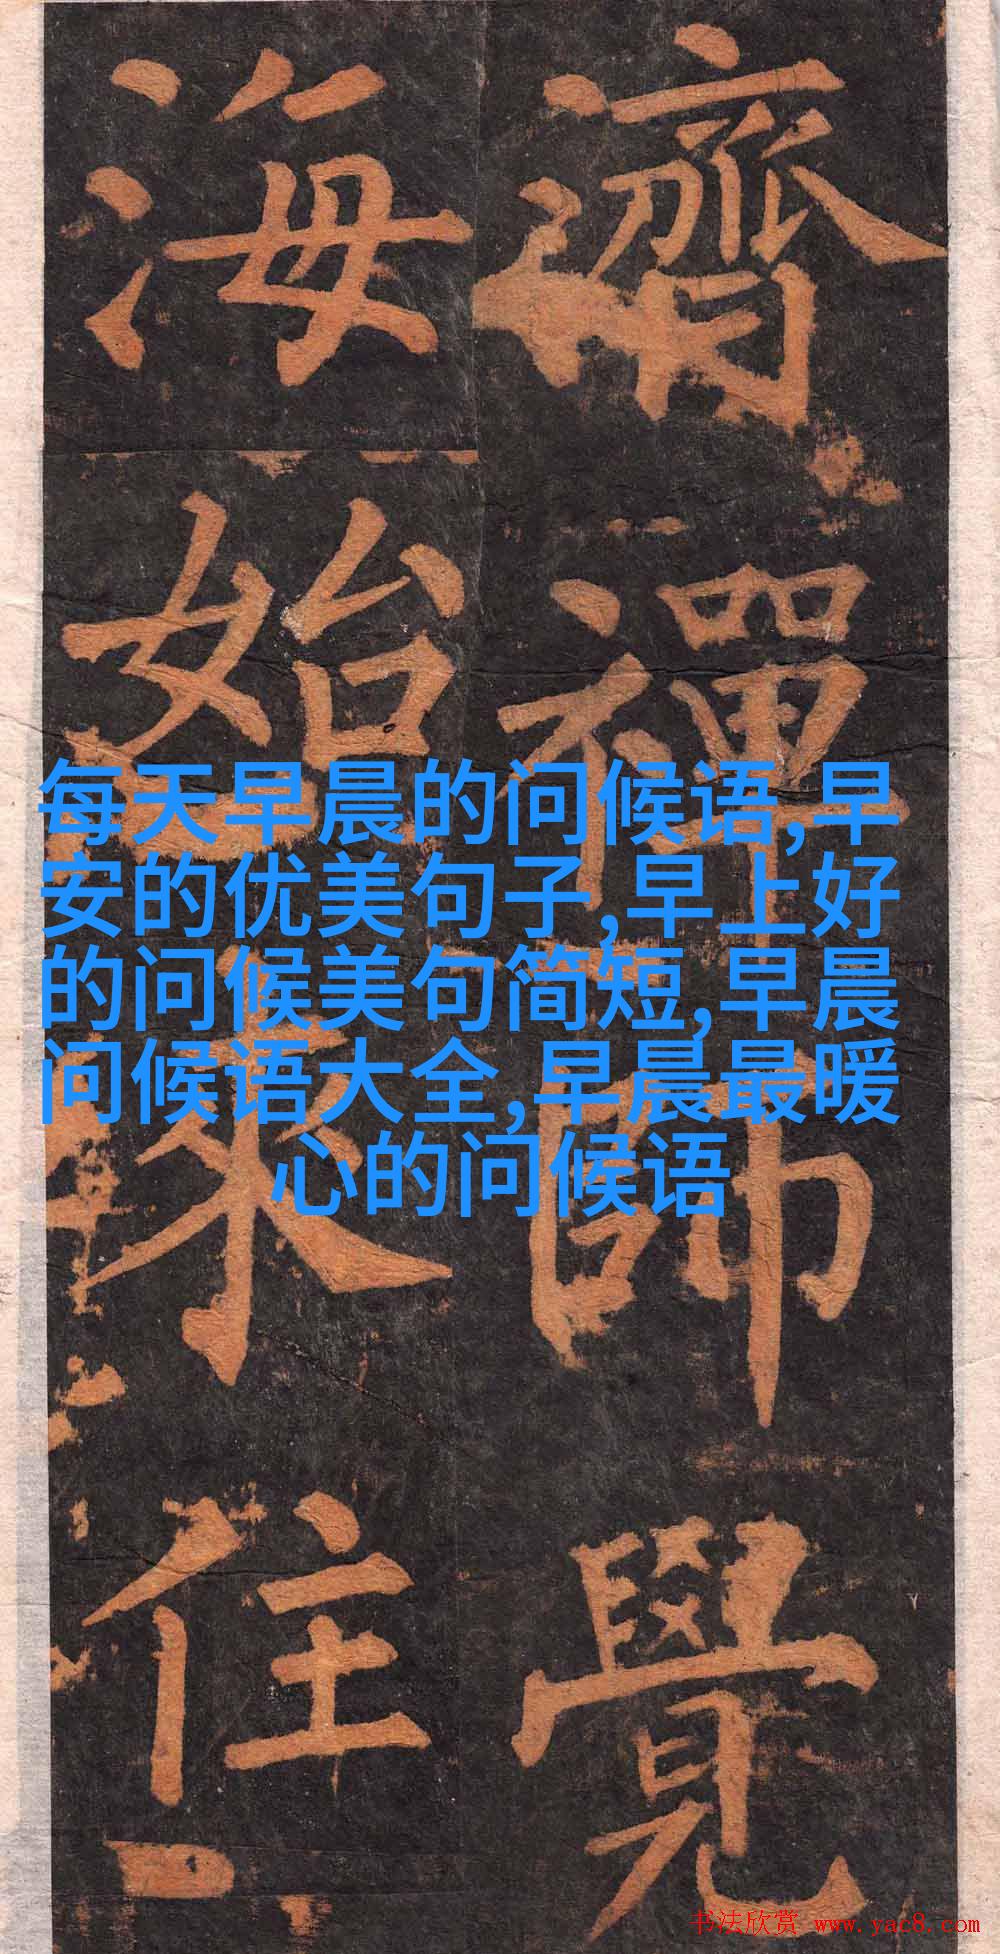 濟禪師覺
海始來住
每天早晨的问候语,早
安的优美句子,早上好
的问候美句简短,早晨
问候语大全,早晨最暖
心的问候语
书法欣赏 www.yac8.com